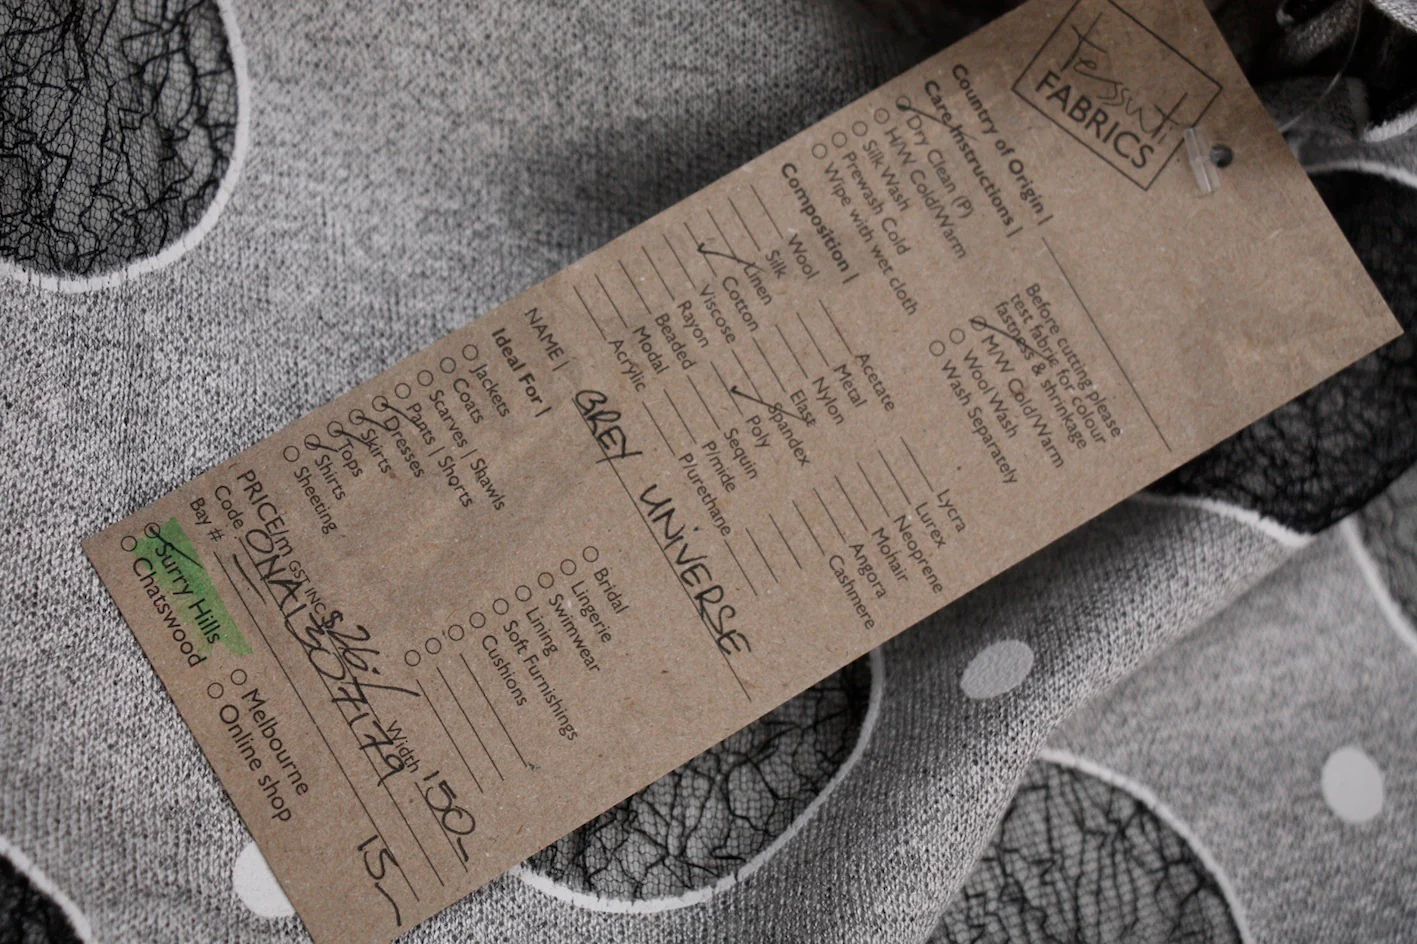 tessuti
FABRICS
Country of Origin |
Care Instructions |
Before cutting please
test fabric for colour
fastness & shrinkage
Dry Clean (P)
H/W Cold/Warm
Silk Wash
Prewash Cold
Wipe with wet cloth
M/W Cold/Warm
Wool Wash
Wash Separately
Composition |
Wool Acetate Lycra
Silk Metal Lurex
Linen Nylon Neoprene
Cotton Elast Mohair
Viscose Spandex Angora
Rayon Poly Cashmere
Beaded Sequin
Modal P/mide
Acrylic P/urethane
NAME | GREY UNIVERSE
Ideal For |
Jackets Bridal
Coats Lingerie
Scarves | Shawls Swimwear
Pants | Shorts Lining
Dresses Soft Furnishings
Skirts Cushions
Tops
Shirts
Sheeting
PRICE/m GST INC $26/ Width 150
Code ONA1307179
Bay # 15
Surry Hills Melbourne
Chatswood Online shop